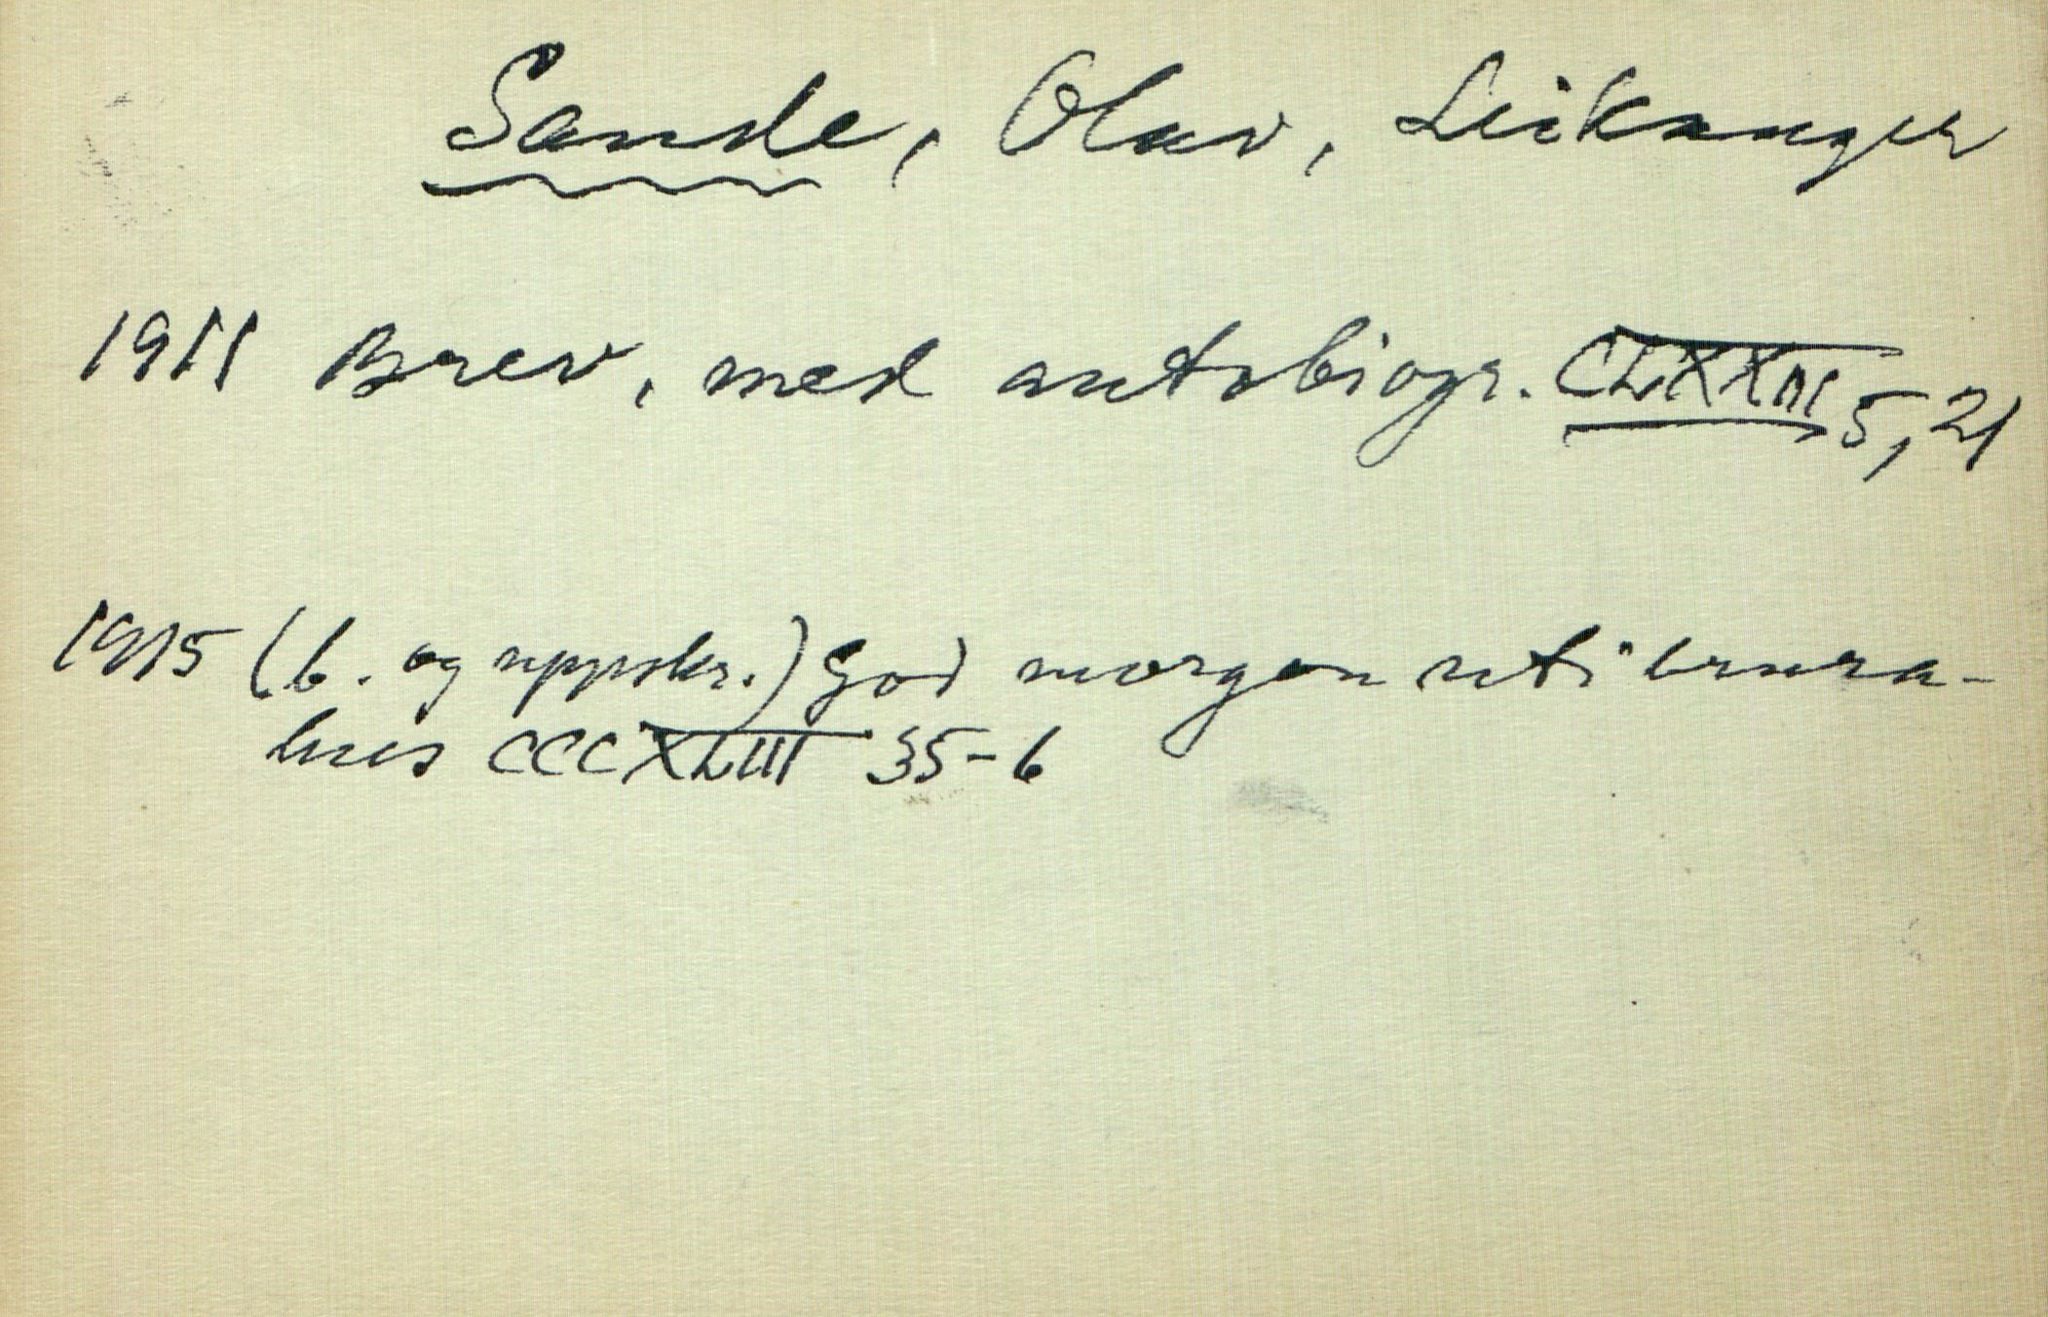 Sande, Olav, Leikanger
1911 Brev, med autobiogr. CLXXIII 5, 21
1915 (b. og uppskr.) God morgon uti brura-
hus CCCXLIII 35-6